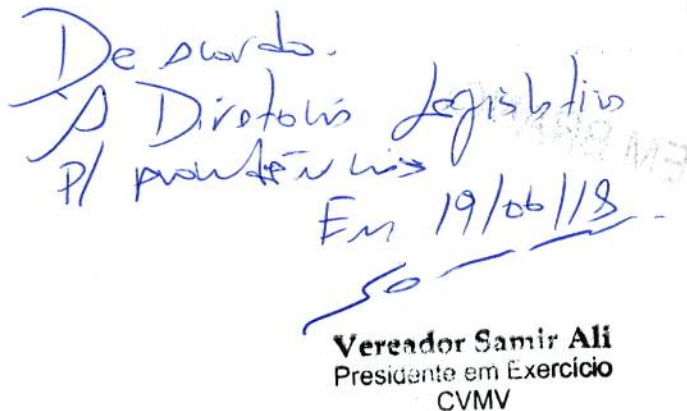 De acordo.
À Diretoria Legislativa
P/ providências
Em 19/06/18.
Vereador Samir Ali
Presidente em Exercício
CVMV
EM BRA